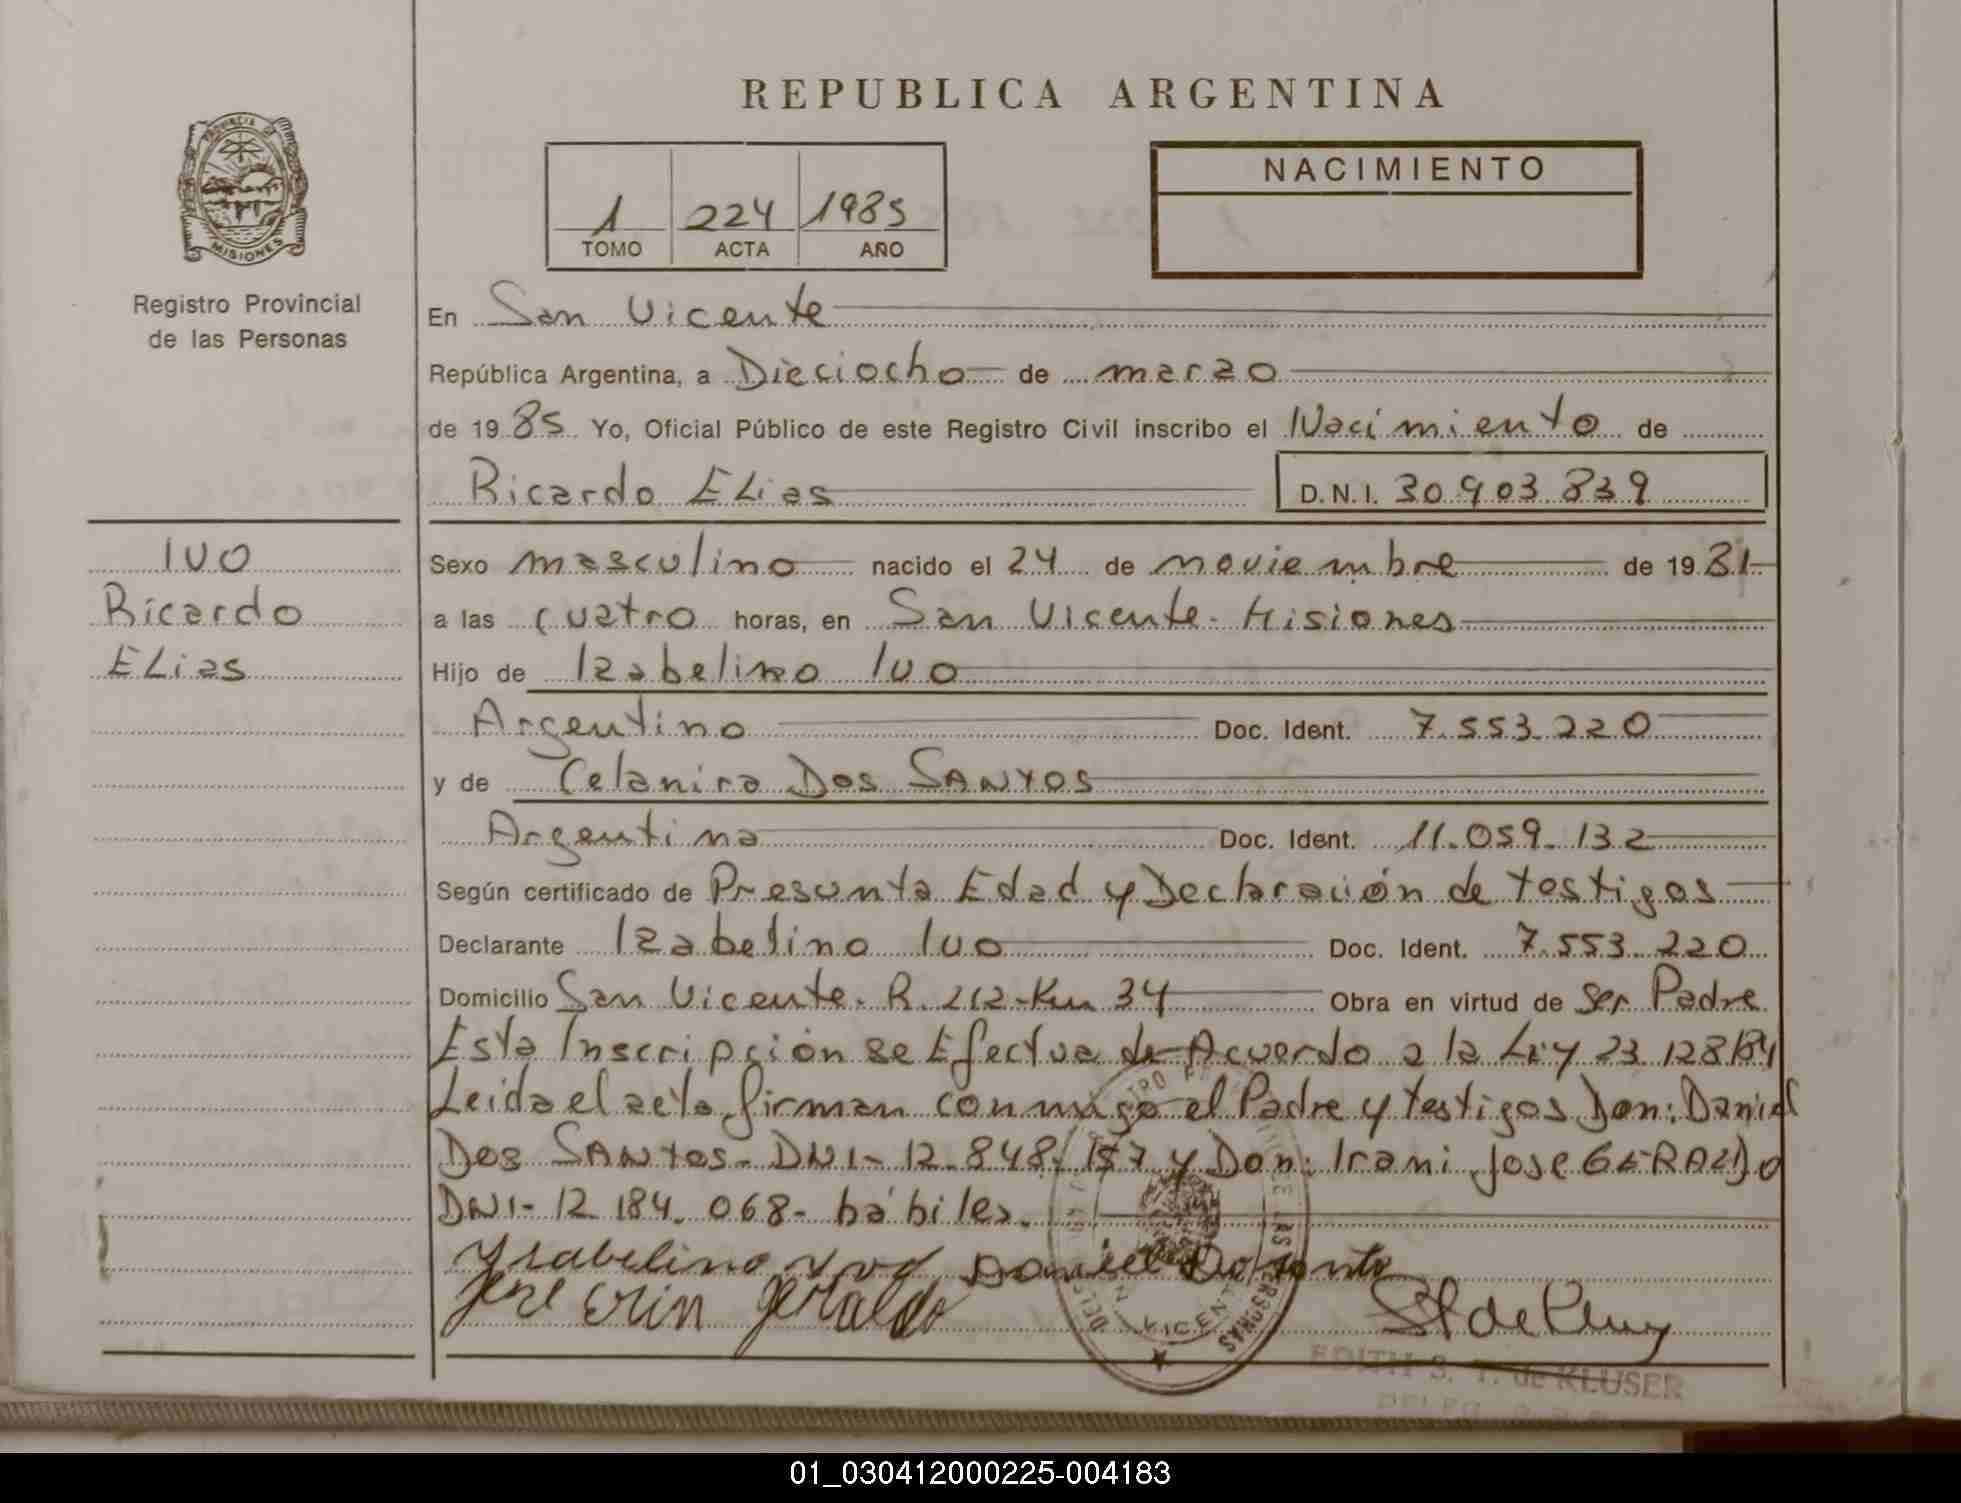 REPUBLICA ARGENTINA
PROVINCIA DE
MISIONES
Registro Provincial
de las Personas
1 224 1985
TOMO ACTA AÑO
NACIMIENTO
En San Vicente
República Argentina, a Dieciocho de marzo
de 1985 Yo, Oficial Público de este Registro Civil inscribo el Nacimiento de
Ricardo ELias D.N.I. 30 903 839
IVO
Ricardo
ELias
Sexo masculino nacido el 24 de noviembre de 1981
a las cuatro horas, en San Vicente - Misiones
Hijo de Izabelino Ivo
Argentino Doc. Ident. 7.553.220
y de Celanira Dos SANtOS
Argentina Doc. Ident. 11.059.132
Según certificado de Presunta Edad y Declaración de testigos
Declarante Izabelino Ivo Doc. Ident. 7.553.220
Domicilio San Vicente - R. 212 - Km 34 Obra en virtud de ser Padre
Esta Inscripción se Efectua de Acuerdo a la Ley 23 128/84
Leida el acta, firman conmigo el Padre y testigos Don: Daniel
Dos SANtos - DNI - 12.848.157 y Don: Irani Jose GERALDO
DNI - 12 184.068 - hábiles.
Ysabelino Daniel Do
jose geraldo
VICENTE
PERSONAS
EDITH S. T. de KLUSER
01_030412000225-004183